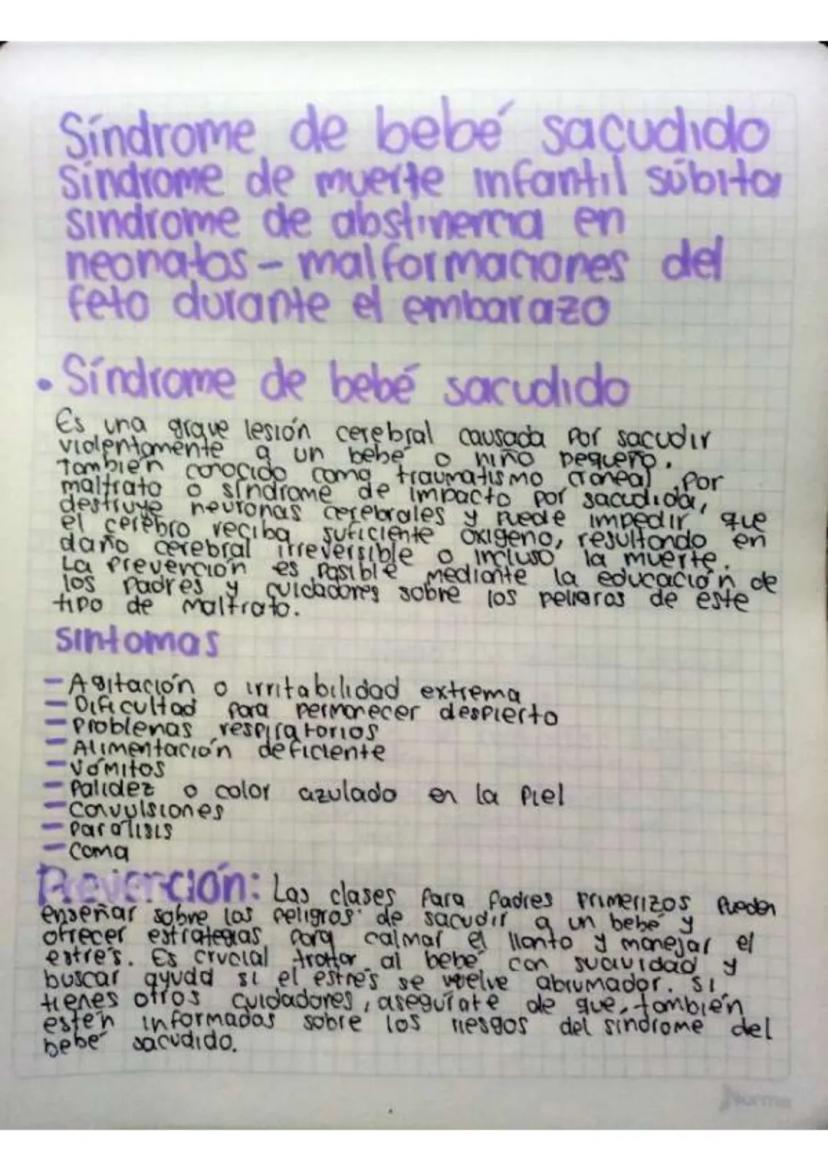 Síndrome de bebé sacudido
síndrome de muerte infantil súbita
sindrome de abstinencia en
neonatos - malformaciones del
feto durante el embarazo
• Síndrome de bebé sacudido
Es una grave lesión cerebral causada por sacudir
violentamente a un bebé o niño pequeño.
También conocido como traumatismo craneal por
maltrato o síndrome de impacto por sacudida,
destruye neuronas cerebrales y puede impedir que
el cerebro reciba suficiente oxígeno, resultando en
daño cerebral irreversible o incluso la muerte.
La prevención es posible mediante la educación de
los padres y cuidadores sobre los peligros de este
tipo de maltrato.
sintomas
- Agitación o irritabilidad extrema
- Dificultad para permanecer despierto
- Problemas respiratorios
- Alimentación deficiente
- Vómitos
- Palidez o color azulado en la piel
- Convulsiones
- Parálisis
- Coma
Prevención: Las clases para padres primerizos pueden
enseñar sobre los peligros de sacudir a un bebé y
ofrecer estrategias para calmar el llanto y manejar el
estrés. Es crucial tratar al bebé con suavidad y
buscar ayuda si el estrés se vuelve abrumador. Si
tienes otros cuidadores, asegúrate de que, también
estén informados sobre los riesgos del sindrome del
bebé sacudido.
Norma